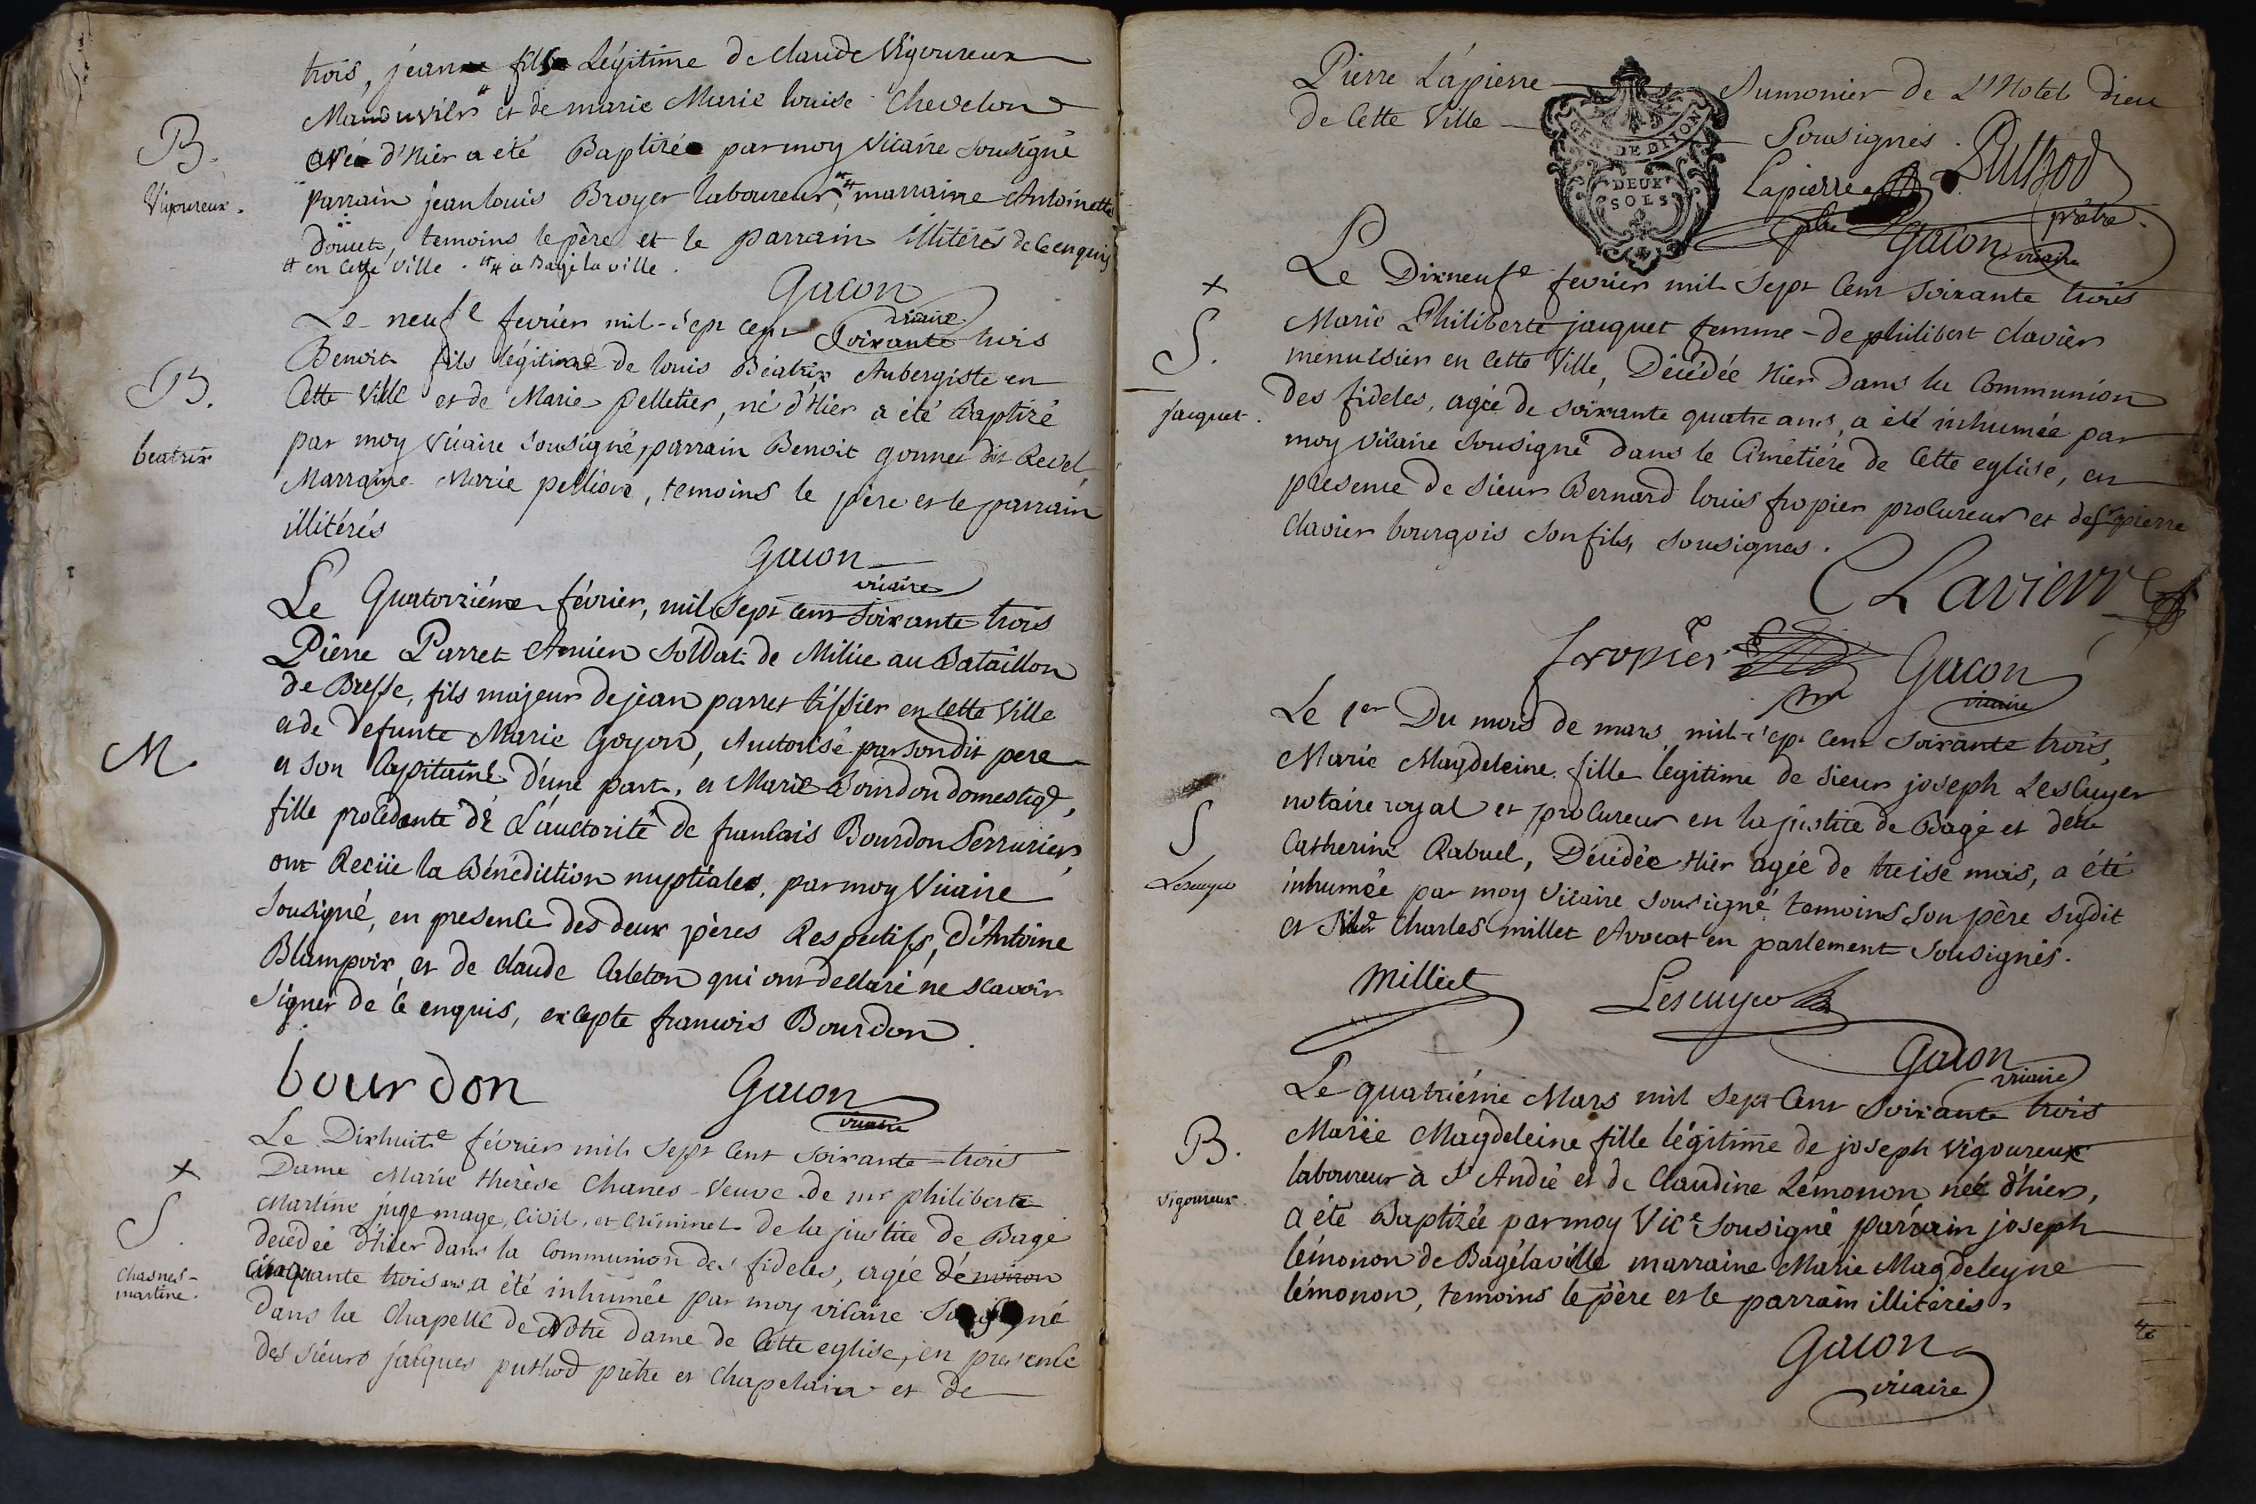 trois, jean fils Légitime de Claude Vigoureux
Manduvier # et de marie Marie louise Chevelon
née d'hier a été Baptizée par moy Vicaire sousigné
B.
Vigoureux.
parrain jean louis Broyer laboureur ## marraine Antoinette
douet, temoins le père et le parrain illitérés de ce enquis
# en Cette Ville. ## a Bagé la ville.
Gacon
vicaire
Le neufe fevrier mil sept cent soixante trois
Benoit fils légitime de louis Béatrix Aubergiste en
B.
Cette Ville et de Marie Pelletier, né d'Hier a été Baptizé
beatrix
par moy Vicaire sousigné, parrain Benoit gonnet dit Revel
Marraine Marie pellion, temoins le père et le parrain
illitérés
Gacon
vicaire
Le Quatorziéme février, mil sept cent soixante trois
Pierre Parret Ancien soldat de Milice au Bataillon
de Bresse, fils majeur de jean parret tissier en Cette Ville
et de Defunte Marie Goyon, Authorisé par son dit pere
M.
et son Capitaine d'une part, et Marie Bourdon domestiqe,
fille procedante de L'auctorité de francais Bourdon Serrurier,
ont Recüe la Bénédiction nuptiale, par moy Vicaire
sousigné, en presence des deux pères Respectifs, d'Antoine
Blampoix, et de claude Carleton qui ont declaré ne scavoir
signer de ce enquis, excepte francois Bourdon.
bourdon Gacon
vicaire
Le Dixhuite février mil sept Cent soixante trois
+
Dame Marie thérèse Chanes Veuve de mr philiberte
S.
Martine juge mage, Civil, et Criminel de la justice de Bagé
decedée d'hier dans la Communion des fideles, agée d'environ
chasnes-
martine.
Cinquante trois ans a été inhumée par moy vicaire Sousigné
dans la Chapelle de Notre Dame de Cette eglise, en presence
des sieurs jacques puthod prêtre et Chapelain et de
Pierre Lapierre Aumonier de L'Hotel dieu
de Cette Ville Sousignés.
GEN. DE DIJON
DEUX
SOLS
Lapierre Puthod
ptre prêtre.
Gacon
vicaire
Le Dixneufe fevrier mil sept Cent soixante trois
+
Marie Philiberte jacquet femme de philibert clavier
S.
menuisier en Cette Ville, Décédée Hier Dans la Communion
jacquet.
des fideles, agée de soixante quatre ans, a été inhumée par
moy vicaire sousigné dans le Cimétiére de Cette eglise, en
presence de sieur Bernard louis fropier procureur et de sr pierre
clavier bourgois son fils, sousignes.
CLavier
fropier Gacon
vicaire
Le 1er Du mois de mars, mil sept Cent soixante trois,
Marie Magdeleine fille légitime de sieur joseph Lescuyer
S
notaire royal et procureur en la justice de Bagé et de
Catherine Rabuel, Décédée Hier agée de treise mois, a été
Lescuyer
inhumée par moy Vicaire sousigné temoins son père sudit
et Charles millet Avocat en parlement sousignés.
Milliet Lescuyer
Gacon
vicaire
Le quatriéme Mars mil sept Cent soixante trois
B.
Marie Magdeleine fille légitime de joseph Vigoureux
vigoureux.
laboureur à St André et de Claudine Lémonon née d'hier,
a été Baptizée par moy Vice Sousigné parrain joseph
lémonon de Bagélaville marraine Marie Magdeleyne
lémonon, temoins le père et le parrain illitérés.
Gacon
vicaire